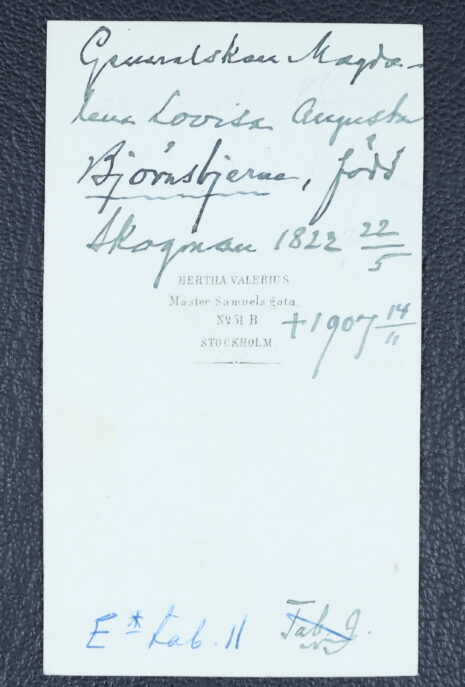 Generalskan Magda-
lena Lovisa Augusta
Björnstjerna, född
Skogman 1822 22/5
BERTHA VALERIUS
Mäster Samuels gata,
No 51 B
STOCKHOLM.
+1907 14/11
E* tab. 11 Tab. J.